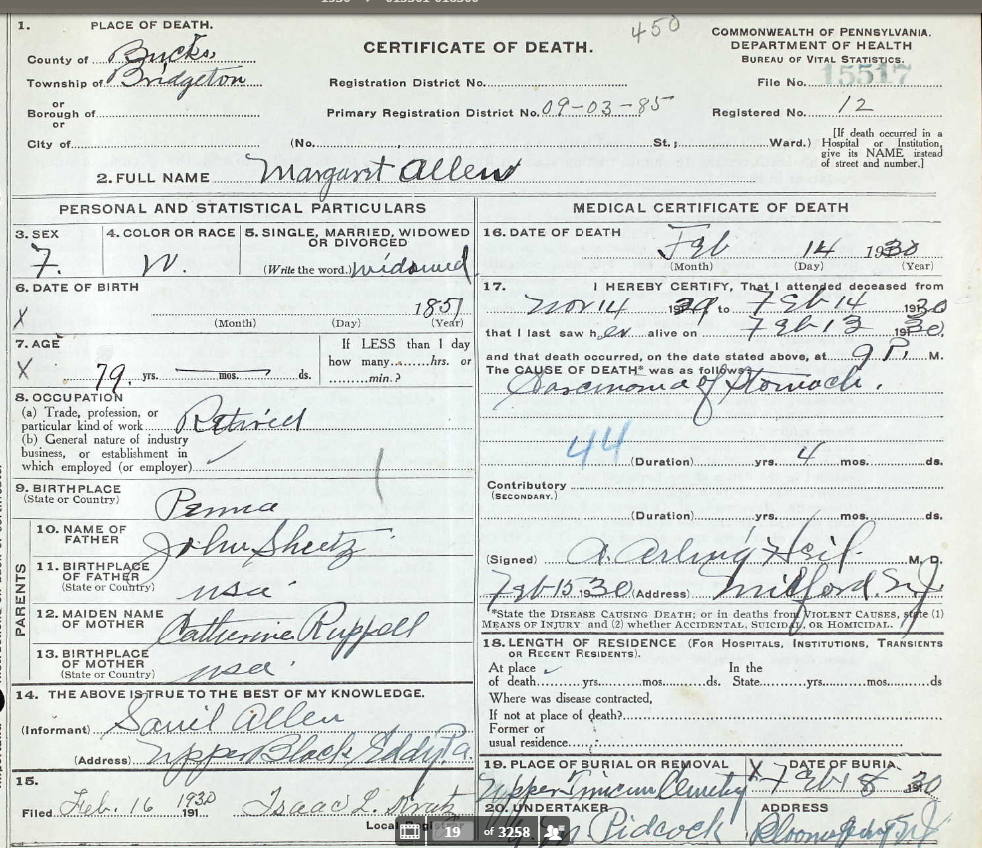 1.
PLACE OF DEATH.
County of Bucks
Township of Bridgeton
or
Borough of
or
City of
CERTIFICATE OF DEATH.
450
Registration District No.
Primary Registration District No. 09-03-85
(No. , St.; Ward.)
COMMONWEALTH OF PENNSYLVANIA.
DEPARTMENT OF HEALTH
BUREAU OF VITAL STATISTICS.
File No. 15517
Registered No. 12
[If death occurred in a
Hospital or Institution,
give its NAME instead
of street and number.]
2. FULL NAME Margaret Allen
PERSONAL AND STATISTICAL PARTICULARS
3. SEX
F.
4. COLOR OR RACE
W.
5. SINGLE, MARRIED, WIDOWED
OR DIVORCED
(Write the word.) Widowed
6. DATE OF BIRTH
X 1851
(Month) (Day) (Year)
7. AGE
X 79. yrs. mos. ds.
If LESS than 1 day
how many......hrs. or
.........min.?
8. OCCUPATION
(a) Trade, profession, or
particular kind of work Retired
(b) General nature of industry
business, or establishment in
which employed (or employer)
9. BIRTHPLACE
(State or Country) Penna
PARENTS
10. NAME OF
FATHER John Sheetz
11. BIRTHPLACE
OF FATHER
(State or Country) usa
12. MAIDEN NAME
OF MOTHER Catherine Ruppell
13. BIRTHPLACE
OF MOTHER
(State or Country) usa
14. THE ABOVE IS TRUE TO THE BEST OF MY KNOWLEDGE.
(Informant) Allen
(Address) Upper Black Eddy Pa.
15.
Filed Feb. 16 1930 191 Isaac L.
Local
MEDICAL CERTIFICATE OF DEATH
16. DATE OF DEATH
Feb 14 1930
(Month) (Day) (Year)
17. I HEREBY CERTIFY, That I attended deceased from
Nov 14 1929 to Feb 14 1930
that I last saw her alive on Feb 13 1930
and that death occurred, on the date stated above, at 9 P. M.
The CAUSE OF DEATH* was as follows:
Sarcinoma of Stomach.
44
(Duration) yrs. 4 mos. ds.
Contributory
(SECONDARY.)
(Duration) yrs. mos. ds.
(Signed) A. Arling M. D.
Feb 15 1930 (Address) Milford. N.J.
*State the DISEASE CAUSING DEATH; or in deaths from VIOLENT CAUSES, state (1)
MEANS OF INJURY and (2) whether ACCIDENTAL, SUICIDAL, OR HOMICIDAL.
18. LENGTH OF RESIDENCE (FOR HOSPITALS, INSTITUTIONS, TRANSIENTS
OR RECENT RESIDENTS).
At place In the
of death.......yrs.......mos.......ds. State.......yrs.......mos.......ds
Where was disease contracted,
If not at place of death?
Former or
usual residence
19. PLACE OF BURIAL OR REMOVAL
Upper Tinicum Cemetery
X DATE OF BURIA
Feb 18 1930
20. UNDERTAKER
Pidcock
ADDRESS
Bloomsbury N.J.
19 of 3258